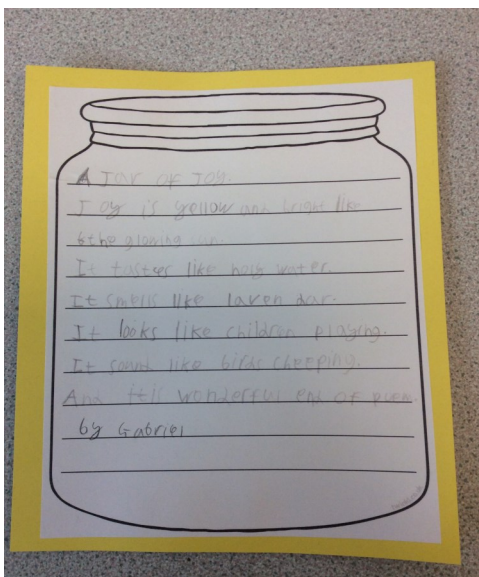 A Jar of Joy.
Joy is yellow and bright like
the glowing sun.
It tastes like holy water.
It smells like laven dar.
It looks like children playing.
It sound like birds cheeping.
And it is wonderful end of poem.
by Gabriel